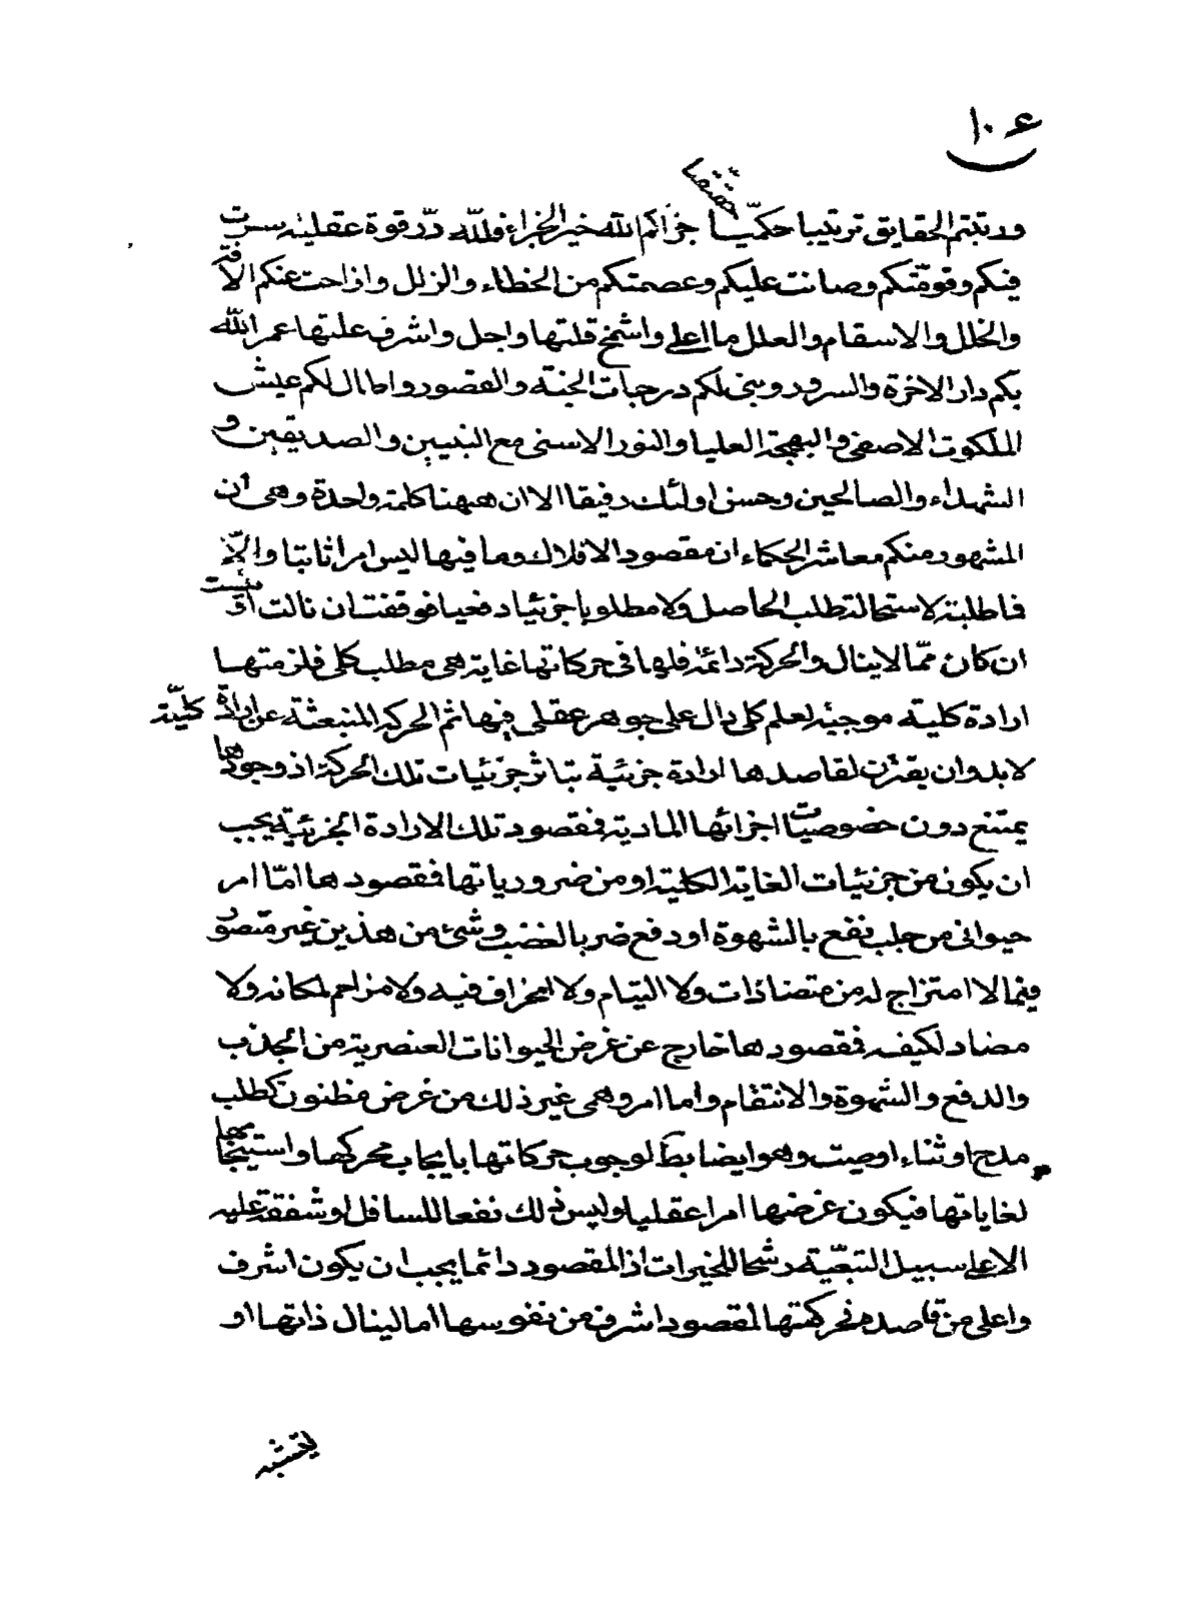 ١٠٤
حقيقيا
ورتبتم الحقايق ترتيبا حكميّا جزاكم الله خير الجزاء فللّه درّ قوة عقلية سرت
فيكم وقومتكم وصانت عليكم وعصمتكم من الخطاء والزلل وازاحت عنكم الافة
والخلل والاسقام والعلل ما اعلى واشمخ قلتها واجل واشرف علتها عمر اللّه
بكم دار الاخرة والسرور وبنى لكم درجات الجنة والقصور واطال لكم عيش
الملكوت الاصفى والبهجة العليا والنور الاسنى مع النبيين والصديقين و
الشهداء والصالحين وحسن اولئك رفيقا الا ان ههنا كلمة واحدة وهى ان
المشهور منكم معاشر الحكماء ان مقصود الافلاك وما فيها ليس امرا ثابتا والّا
فما طلبته لاستحالة طلب الحاصل ولا مطلوبا جزئيا دفعيا فوقفت ان نالت او يئست
ان كان ممّا لا ينال والحركة دائمة فلها فى حركاتها غاية هى مطلب كلى فلزمتها
ارادة كلية موجبة لعلم كلى دال على جوهر عقلى فيها ثم الحركة المنبعثة عن ارادة كليّة
لابد وان يقترن لقاصدها ارادة جزئية تباثر جزئيات تلك الحركة اذ وجودها
يمتنع دون خصوصيات اجزائها المادية فمقصود تلك الارادة الجزئية يجب
ان يكون من جزئيات الغاية الكلية او من ضرورياتها فمقصودها امّا امر
حيوانى من جلب نفع بالشهوة او دفع ضر بالغضب وشئ من هذين غير متصور
فيما لا امتزاج له من متضادات ولا التيام ولا انخراق فيه ولا مزاحم لمكانه ولا
مضاد لكيفه فمقصودها خارج عن غرض الحيوانات العنصرية من الجذب
والدفع والشهوة والانتقام واما امر وهمى غير ذلك من غرض مظنون كطلب
مدح او ثناء او صيت وهو ايضا بط لوجوب حركاتها بايجاب محركها واستيجابها
لغاياتها فيكون غرضها امرا عقليا وليس ذلك نفعا للسافل او شفقة عليه
الا على سبيل التبعيّة رشحا للخيرات اذ المقصود دائما يجب ان يكون اشرف
واعلى من قاصده فحركتها لمقصود اشرف من نفوسها اما لينال ذاتها او